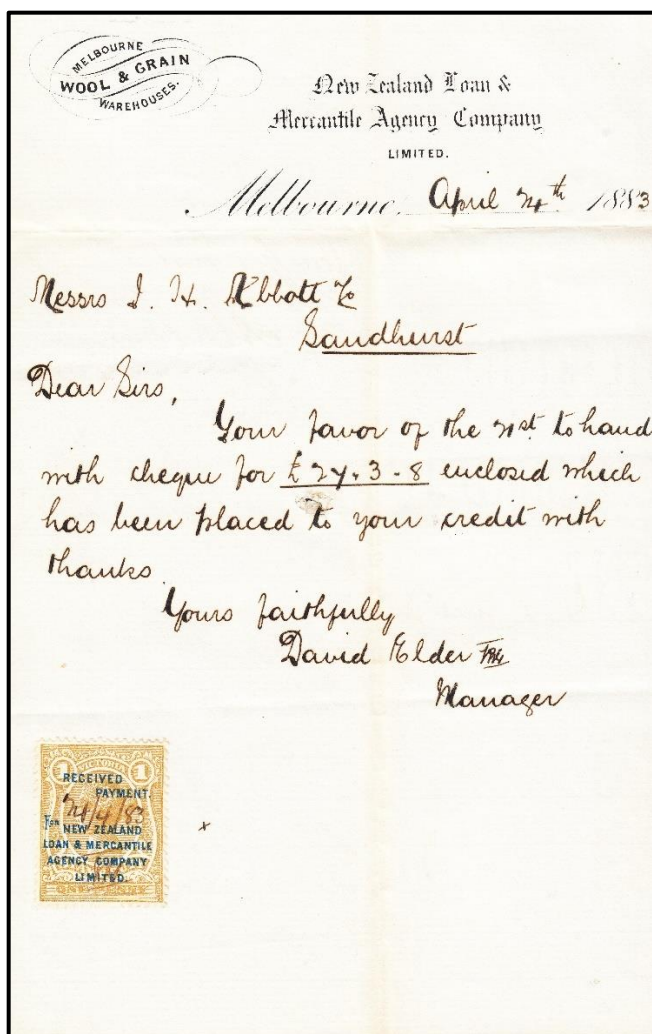 MELBOURNE
WOOL & GRAIN
WAREHOUSES.
New Zealand Loan &
Mercantile Agency Company
LIMITED.
Melbourne, April 24th 1883
Messrs J. H. Abbott & Co
Sandhurst
Dear Sirs,
Your favor of the 21st to hand
with cheque for £27.3-8 enclosed which
has been placed to your credit with
thanks
Yours faithfully
David Elder
Manager
VICTORIA
1 1
RECEIVED
PAYMENT.
24/4/83
For NEW ZEALAND
LOAN & MERCANTILE
AGENCY COMPANY
LIMITED.
ONE PENNY